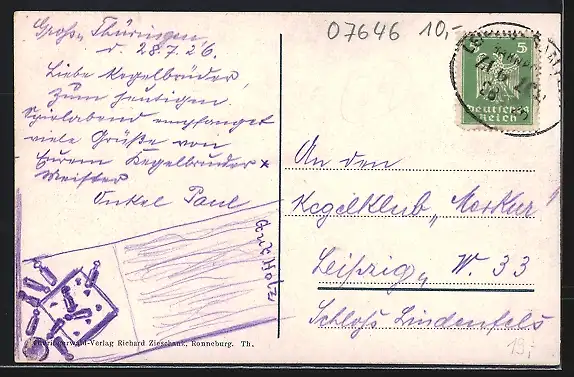 07646 10,-
Groß-Thüringen
d. 28.7.26.
Liebe Kegelbrüder,
Zum heutigen
Spielabend empfanget
viele Grüße von
Eurem Kegelbruder x
Meister
Onkel Paul
Gut Holz
Thüringerwald-Verlag Richard Zieschank, Ronneburg. Th.
5
Deutsches
Reich
An den
Kegelklub „Merkur"
Leipzig, W. 33
Schloß Lindenfels
19,-